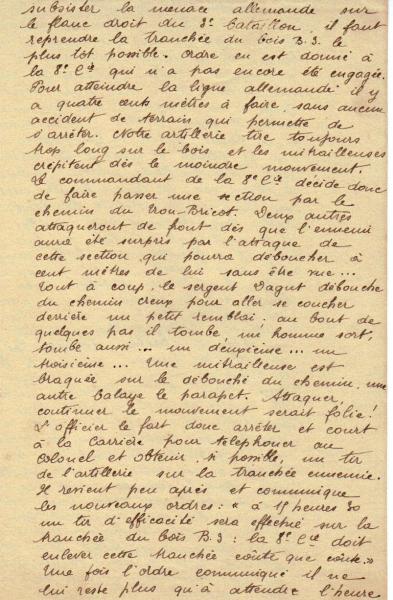 subsister la menace allemande sur
le flanc droit du 3e bataillon, il faut
reprendre la tranchée du bois B.3. le
plus tôt possible. Ordre en est donné à
la 8e Cie qui n'a pas encore été engagée.
Pour atteindre la ligne allemande il y
a quatre cents mètres à faire, sans aucun
accident de terrain qui permette de
s'arrêter. Notre artillerie tire toujours
trop long sur le bois et les mitrailleuses
crépitent dès le moindre mouvement.
Le commandant de la 8e Cie décide donc
de faire passer une section par le
chemin du Trou-Bricot. Deux autres
attaqueront de front dès que l'ennemi
aura été surpris par l'attaque de
cette section qui pourra déboucher à
cent mètres de lui sans être vue...
Tout à coup, le sergent Dagut débouche
du chemin creux pour aller se coucher
derrière un petit remblai: au bout de
quelques pas il tombe, un homme sort,
tombe aussi... un deuxième... un
troisième... Une mitrailleuse est
braquée sur le débouché du chemin, une
autre balaye le parapet. Attaquer,
continuer le mouvement serait folie!
L'officier le fait donc arrêter et court
à la Carrière pour téléphoner au
Colonel et obtenir, si possible, un tir
de l'artillerie sur la tranchée ennemie.
Il revient peu après et communique
les nouveaux ordres: "à 15 heures 30
un tir d'efficacité sera effectué sur la
tranchée du bois B.3: la 8e Cie doit
enlever cette tranchée coûte que coûte."
Une fois l'ordre communiqué il ne
lui reste plus qu'à attendre l'heure